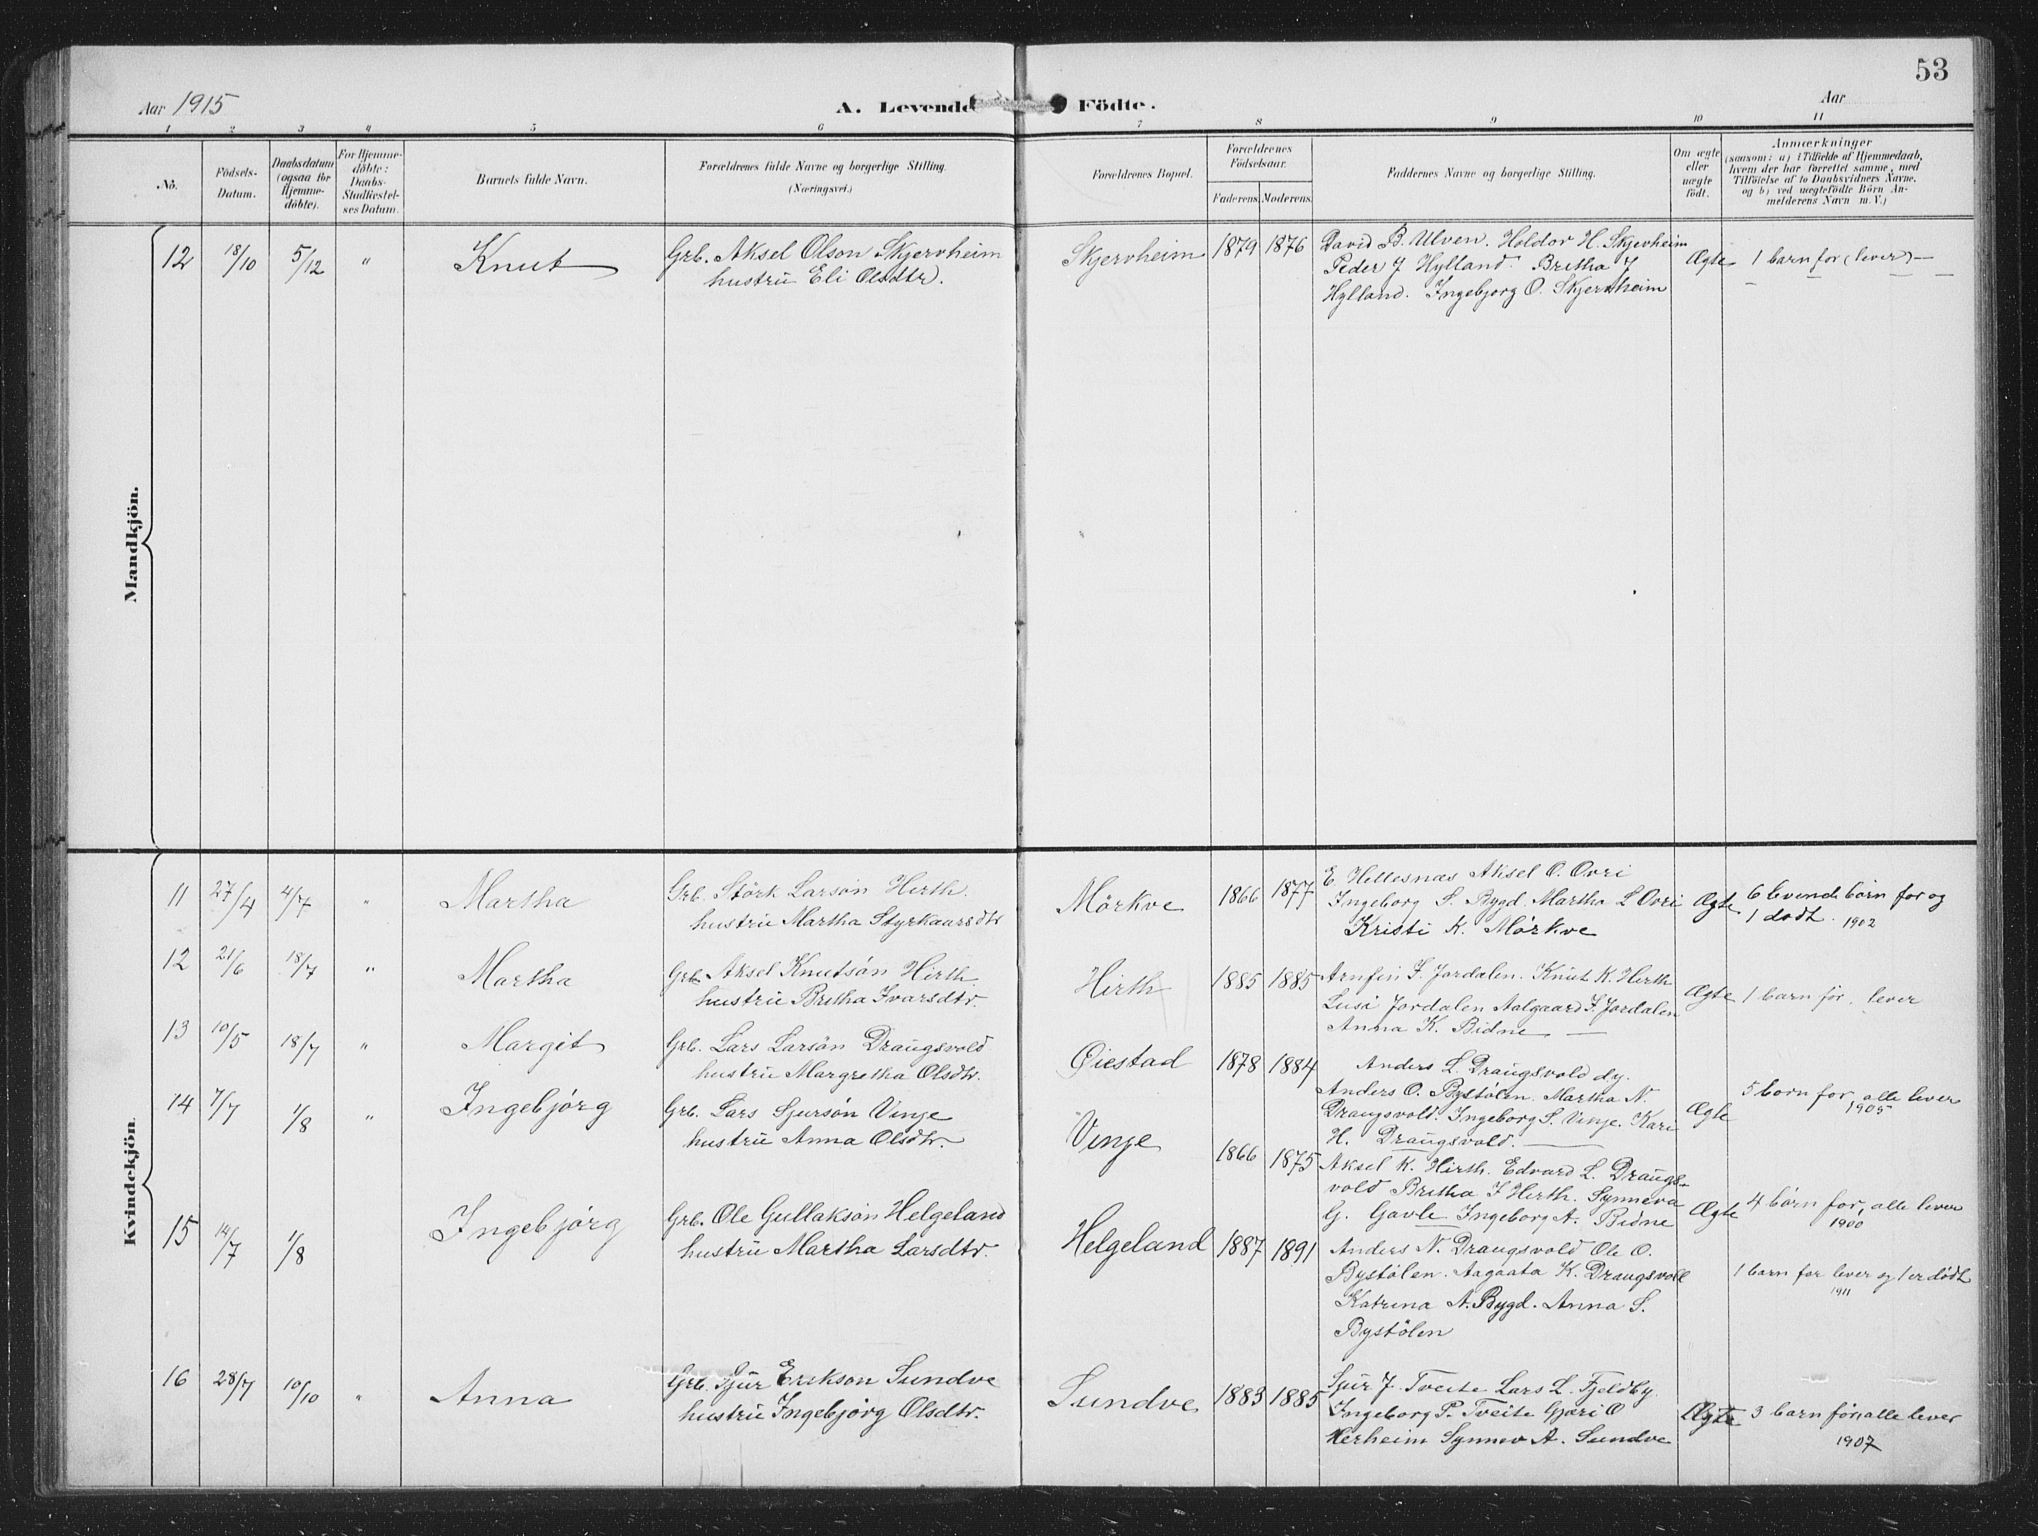 53
Aar 1915
A. Levende Födte.
Aar
1 2 3 4 5 6 7 8 9 10 11
No.
Födsels-
Datum.
Daabsdatum
(ogsaa for
Hjemme-
döbte).
For Hjemme-
döbte:
Daabs-
Stadfæstel-
ses Datum.
Barnets fulde Navn.
Forældrenes fulde Navne og borgerlige Stilling.
(Næringsvei.)
Forældrenes Bopæl.
Forældrenes
Födselsaar.
Faderens. Moderens.
Faddernes Navne og borgerlige Stilling.
Om ægte
eller
uægte
födt.
Anmærkninger
(saasom: a) i Tilfælde af Hjemmedaab,
hvem der har forrettet samme, med
Tilföielse af to Daabsvidners Navne,
og b) ved uægtefödte Börn An-
melderens Navn m. V.)
Mandkjön.
12 18/10 5/12 " Knut
Grb. Aksel Olson Skjervheim
hustru Eli Olsdtr.
Skjervheim 1879 1876
David B. Ulven. Holdor H. Skjervheim
Peder J Hylland. Britha J
Hylland. Ingebjorg O. Skjervheim
Ægte
1 barn for (lever) —
Kvindekjön.
11 27/4 4/7 " Martha
Grb. Störk Larsön Hirth
hustru Martha Styrkaarsdtr
Mörkve 1866 1877
E Hellesnæs Aksel O. Ovri
Ingeborg S. Bygd. Martha L Ovri
Kristi K. Mörkve
Ægte
6 levende börn for og
1 dödt. 1902
12 21/6 18/7 " Martha
Grb. Aksel Knutsön Hirth
hustru Britha Ivarsdtr.
Hirth 1885 1885
Arnfin I. Jordalen. Knut K. Hirth
Lusi Jordalen Aalgaard I. Jordalen
Anna K. Bidne —
Ægte
1 barn för, lever
13 10/5 18/7 " Margit
Grb. Lars Larsön Draugsvold
hustru Margretha Olsdtr.
Öiestad 1878 1884
Anders L. Draugsvold dy.
Anders O. Bystölen. Martha N.
Draugsvold. Ingeborg S. Vinje. Kari
H. Draugsvold. —
Ægte
5 born for, alle lever
1905
14 7/7 1/8 " Ingebjörg
Grb. Lars Sjursön Vinje
hustru Anna Olsdtr.
Vinje 1866 1875
Aksel K. Hirth. Edvard L. Draugs-
vold Britha I Hirth. Synneva
G. Gavle Ingeborg A. Bidne
Ægte
4 börn for, alle lever
1900
15 14/7 1/8 Ingebjörg
Grb. Ole Gullaksön Helgeland
hustru Martha Larsdtr.
Helgeland 1887 1891
Anders N. Draugsvold Ole O.
Bystölen. Aagaata K. Draugsvoll
Katrina A. Bygd. Anna S.
Bystölen
1 barn for lever og 1 er dödt
1911
16 28/7 10/10 " Anna
Grb. Sjur Erikson Sundve
hustru Ingebjörg Olsdtr.
Sundve 1883 1885
Sjur J. Tveite Lars L. Fjeldby.
Ingeborg P. Tveite Gjæri O
Herheim Synnev A. Sundve
Ægte
3 barn för, alle lever
1907